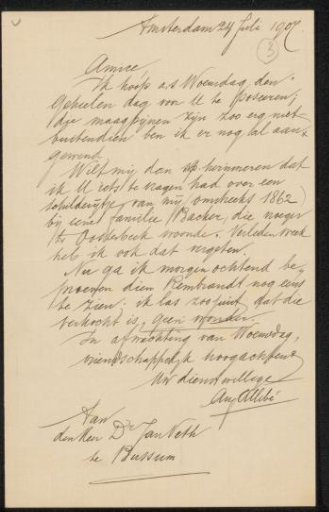 Amsterdam 24 Juli 1907
3
Amice
Ik hoop a.s. Woensdag den
geheelen dag voor U te poseeren;
die maagpijnen zijn zoo erg niet
buitendien ben ik er nog al aan
gewend.
Wilt mij dan herinneren dat
ik U iets te vragen had over een
schilderijtje van mij (omstreeks 1862)
bij eene familie Backer, die vroeger
te Oosterbeek woonde. Verleden week
heb ik ook dat vergeten.
Nu ga ik morgen ochtend be-
proeven dien Rembrandt nog eens
te zien. ik las zoo juist dat die
verkocht is, geen wonder.
In afwachting van Woensdag,
vriendschappelijk hoogachtend
Uw dienstwillige
Aug Allebé
Aan
den Heer Dr Jan Veth
te Bussum